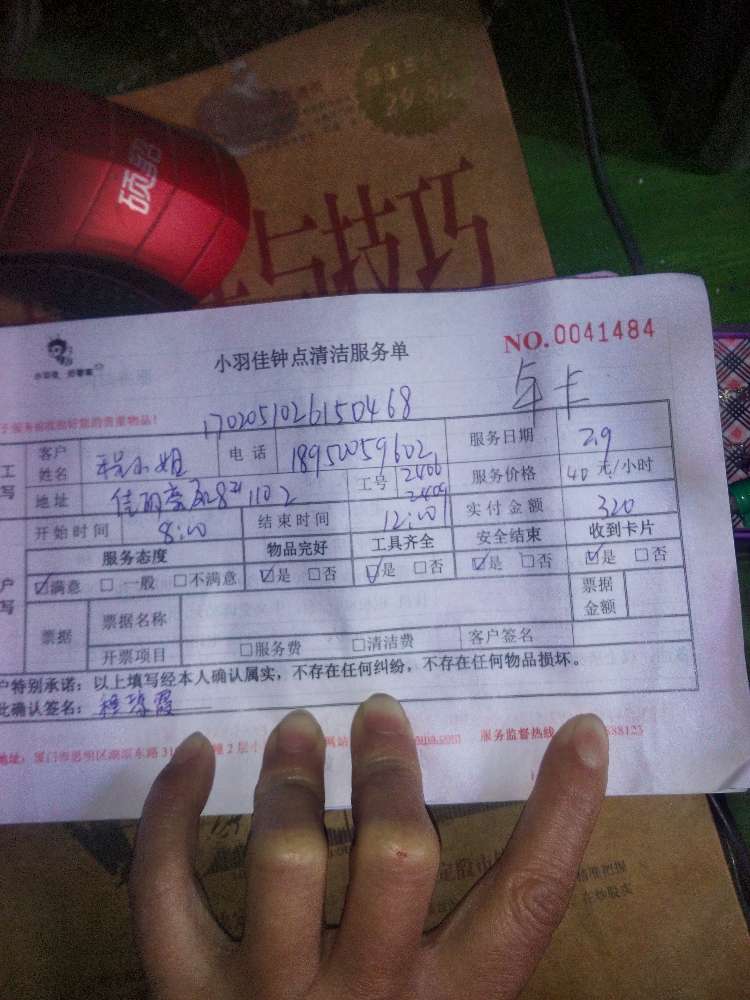 硕图
与技巧
小羽佳钟点清洁服务单
NO.0041484
年卡
1702051026150468
客户姓名 程小姐 电话 18950059602 服务日期 2.9
地址 1102 工号 2406 2409 服务价格 40元/小时
开始时间 8:00 结束时间 12:00 实付金额 320
服务态度 物品完好 工具齐全 安全结束 收到卡片
☑满意 □一般 □不满意 ☑是 □否 ☑是 □否 ☑是 □否 ☑是 □否
票据 票据名称 票据金额
开票项目 □服务费 □清洁费 客户签名
户特别承诺：以上填写经本人确认属实，不存在任何纠纷，不存在任何物品损坏。
此确认签名：
地址：厦门市思明区湖滨东路31 2层小 网站 服务监督热线 88123